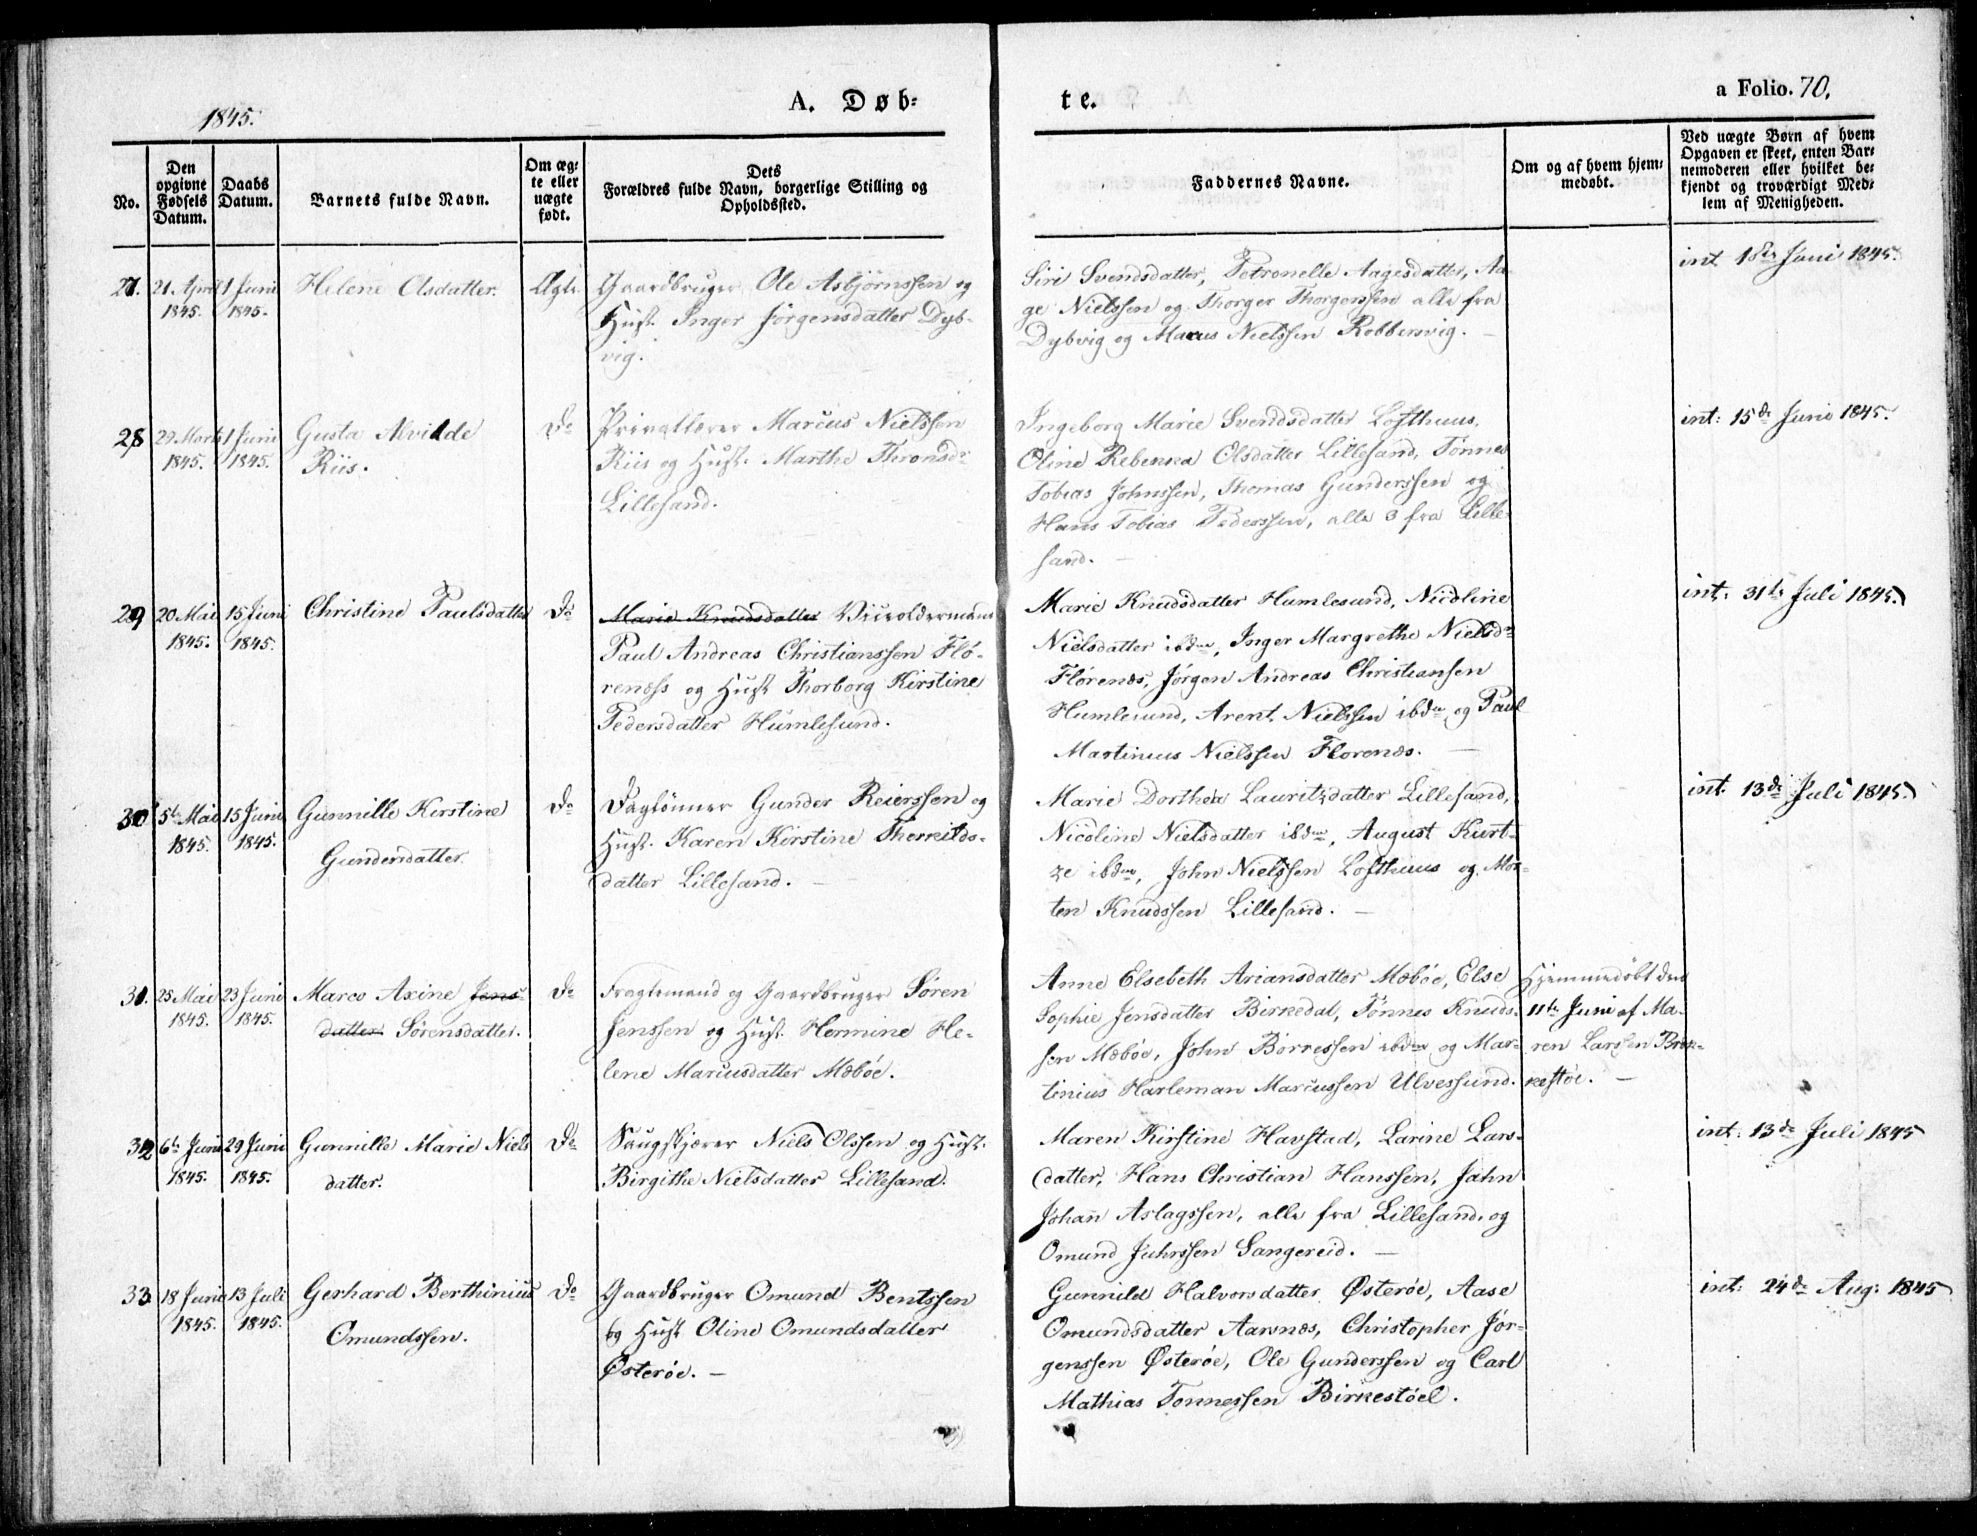 1845.
A. Døb-
te.
a Folio. 70.
No.
Den opgivne Fødsels Datum.
Daabs Datum.
Barnets fulde Navn.
Om ægte eller uægte født.
Dets
Forældres fulde Navn, borgerlige Stilling og
Opholdssted.
Faddernes Navne.
Om og af hvem hjem-
medøbt.
Ved uægte Børn af hvem
Opgaven er skeet, enten Bar-
nemoderen eller hvilket be-
kjendt og troværdigt Med-
lem af Menigheden.
27. 21 April 1845. 1 Juni 1845. Helene Olsdatter. Ægte.
Gaardbruger Ole Asbjørnssen og
Hust. Inger Jørgensdatter Dyb-
vig.
Siri Svendsdatter, Petronelle Aagesdatter, Aa-
ge Nielssen og Thorger Thorgerssen alle fra
Dybvig og Marcus Nielssen Robbersvig. —
int. 1845.
28 29 Marts 1845. 1 Juni 1845. Gusta Alvilde
Riis.
Do
Privatlærer Marcus Nielssen
Riis og Hust. Marthe Thronsdr
Lillesand.
Ingeborg Marie Svendsdatter Lofthuus,
Oline Rebekka Olsdatter Lillesand, Tønnes
Tobias Johnssen, Thomas Gunderssen og
Hans Tobias Pederssen, alle 3 fra Lille-
sand. —
int: 15de Juni 1845.
29 20 Mai 1845. 15 Juni 1845. Christine Paulsdatter Do
Marie Knudsdatter Viceoldermand
Paul Andreas Christianssen Flø-
renæss og Hust Thorborg Kirstine
Pedersdatter Humlesund.
Marie Knudsdatter Humlesund, Nicoline
Nielsdatter ibdm, Inger Margrethe Nielsdr
Flørenæs, Jørgen Andreas Christiansen
Humlesund, Arent Nielssen ibdm og Paul
Martinius Nielssen Florenæs. —
int: 31te Juli 1845.
30 5te Mai 1845. 15 Juni 1845. Gunnille Kirstine
Gundersdatter.
Do
Daglønner Gunder Reierssen og
Hust. Karen Kirstine Therkilds-
datter Lillesand. —
Marie Dorthea Lauritzdatter Lillesand,
Nicoline Nielsdatter ibdm, August Kurt-
ze ibdm, John Nielssen Lofthuus og Mor-
ten Knudssen Lillesand. —
int. 13de Juli 1845.
31. 25 Mai 1845. 23 Juni 1845. Maren Axine Jens-
datter Sørensdatter.
Do
Fragtemand og Gaardbruger Søren
Jenssen og Hust. Hermine He-
lene Marcusdatter Mæbøe.
Anne Elsebeth Ariansdatter Mæbøe, Else
Sophie Jensdatter Birkedal, Tønnes Knuds-
sen Mæbøe, John Børressen ibdm og Mar-
tinius Harleman Marcussen Ulvessund.
Hjemmedøbt den
11te Juni af Ma-
ren Larssen
kestøe. —
32 6te Juni 1845. 29 Juni 1845. Gunnille Marie Niels
datter.
Do
Saugskjærer Niels Olssen og Hust.
Birgithe Nielsdatter Lillesand.
Maren Kirstine Havstad, Larine Lars-
datter, Hans Christian Hanssen, Jahn
Johan Aslagssen, alle fra Lillesand, og
Omund Juhrssen Sangereid. —
int: 13de Juli 1845
33. 18 Juni 1845. 13 Juli 1845. Gerhard Berthinius
Omundssen.
Do
Gaardbruger Omund Bentssen
og Hust Oline Omundsdatter
Østerøe. —
Gunnild Halvorsdatter Østerøe, Aase
Omundsdatter Aarsnæs, Christopher Jør-
genssen Østerøe, Ole Gunderssen og Carl
Mathias Tønnessen Birkestøel.
int: 24de Aug: 1845